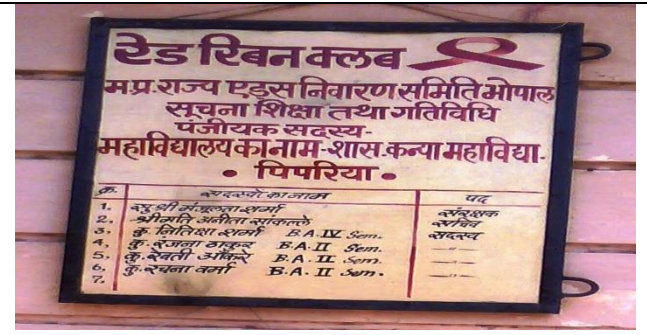 रेड रिबन क्लब
म.प्र. राज्य एड्स निवारण समिति भोपाल
सूचना शिक्षा तथा गतिविधि
पंजीयक सदस्य-
महाविद्यालय का नाम-शास. कन्या महाविद्या.
• पिपरिया •
क्र. सदस्यो का नाम पद
1. सुश्री मंजूलता शर्मा संरक्षक
2. श्रीमति अनीता सांकल्ले सचिव
3. कु. नितिक्षा शर्मा B.A. IV Sem. सदस्य
4. कु. रंजना ठाकुर B.A. II Sem. —"—
5. कु. रेवती B.A. II Sem. —"—
6. कु. रचना वर्मा B.A. II Sem. —"—
7.